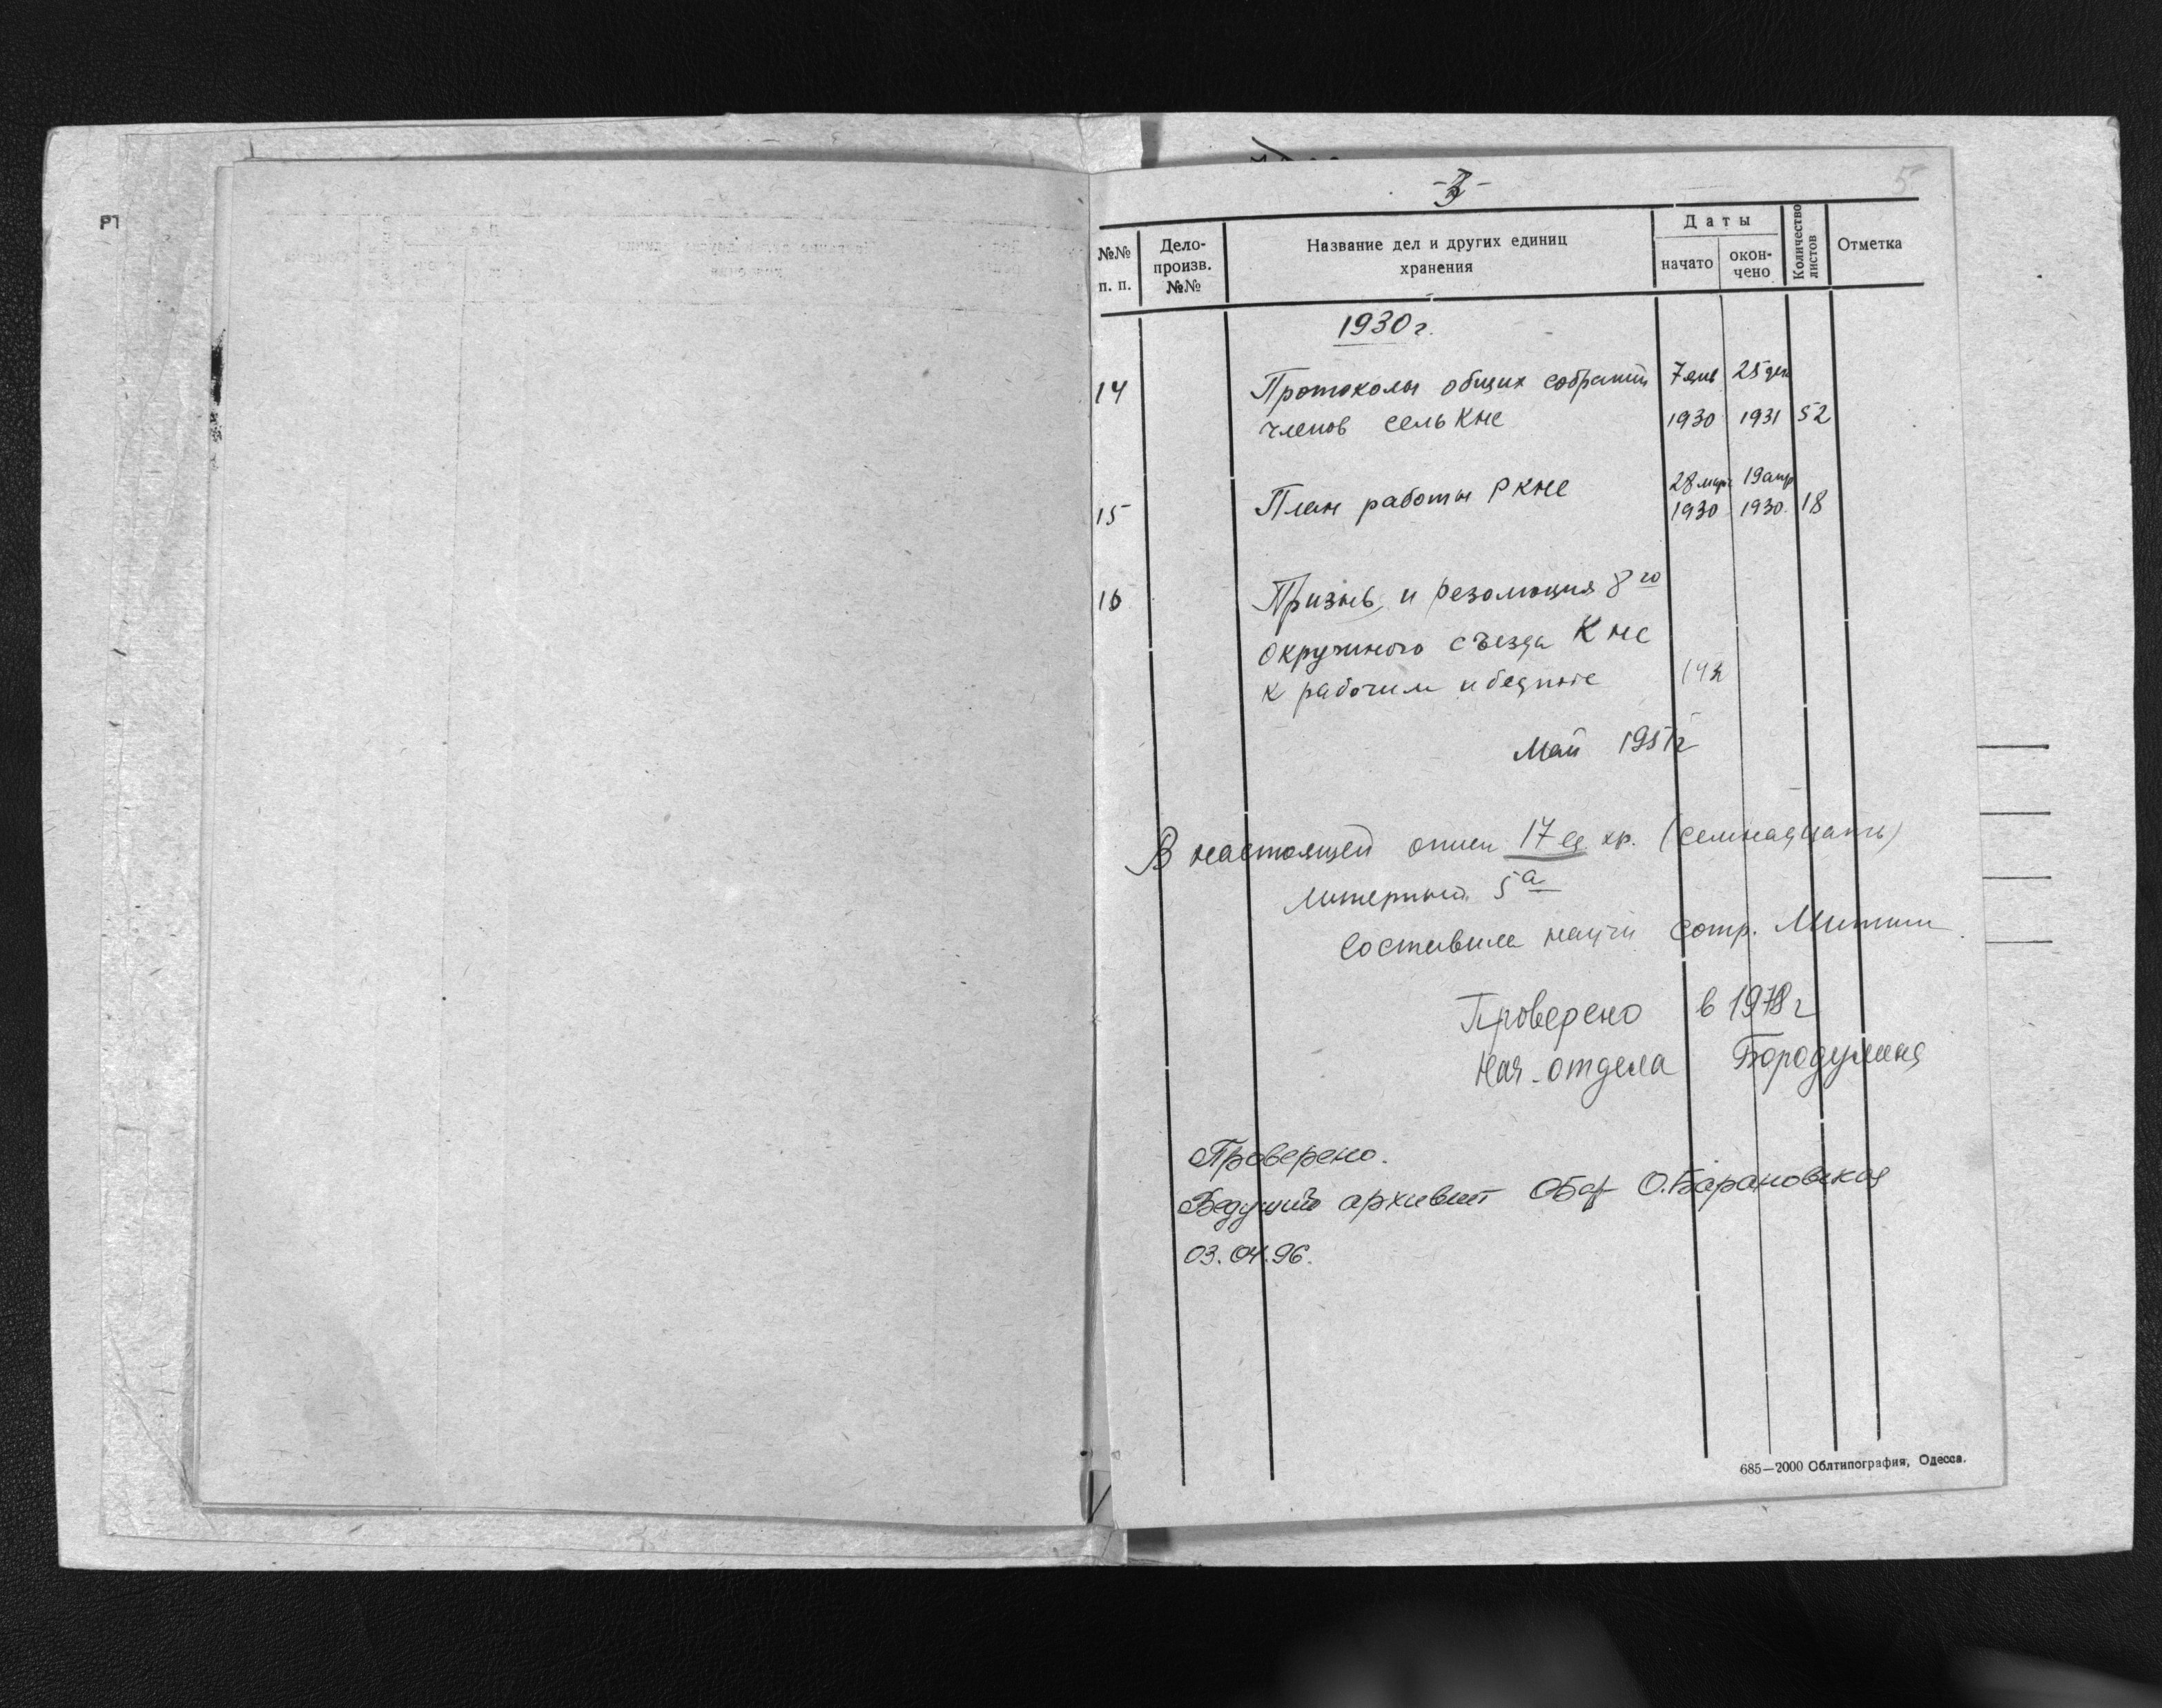 -3-
5
№№ п. п.
Дело-произв. №№
Название дел и других единиц хранения
Даты
начато
окон-чено
Количество листов
Отметка
1930 г.
14 Протоколы общих собраний 7 янв 25 дек
членов сель КНС 1930 1931 52
28 мар 19 апр
15 План работы РКНС 1930 1930. 18
16 Призыв и резолюция 8го
окружного съезда КНС
к рабочим и бедноте
Май 1951 г
В настоящей описи 17 ед. хр. (семнадцать)
Литерный 5а
Составила научн сотр.
Проверено в 1978 г
Нач. отдела
Проверено.
Ведущий архивист О.Барановская
03.04.96.
685—2000 Облтипография, Одесса.